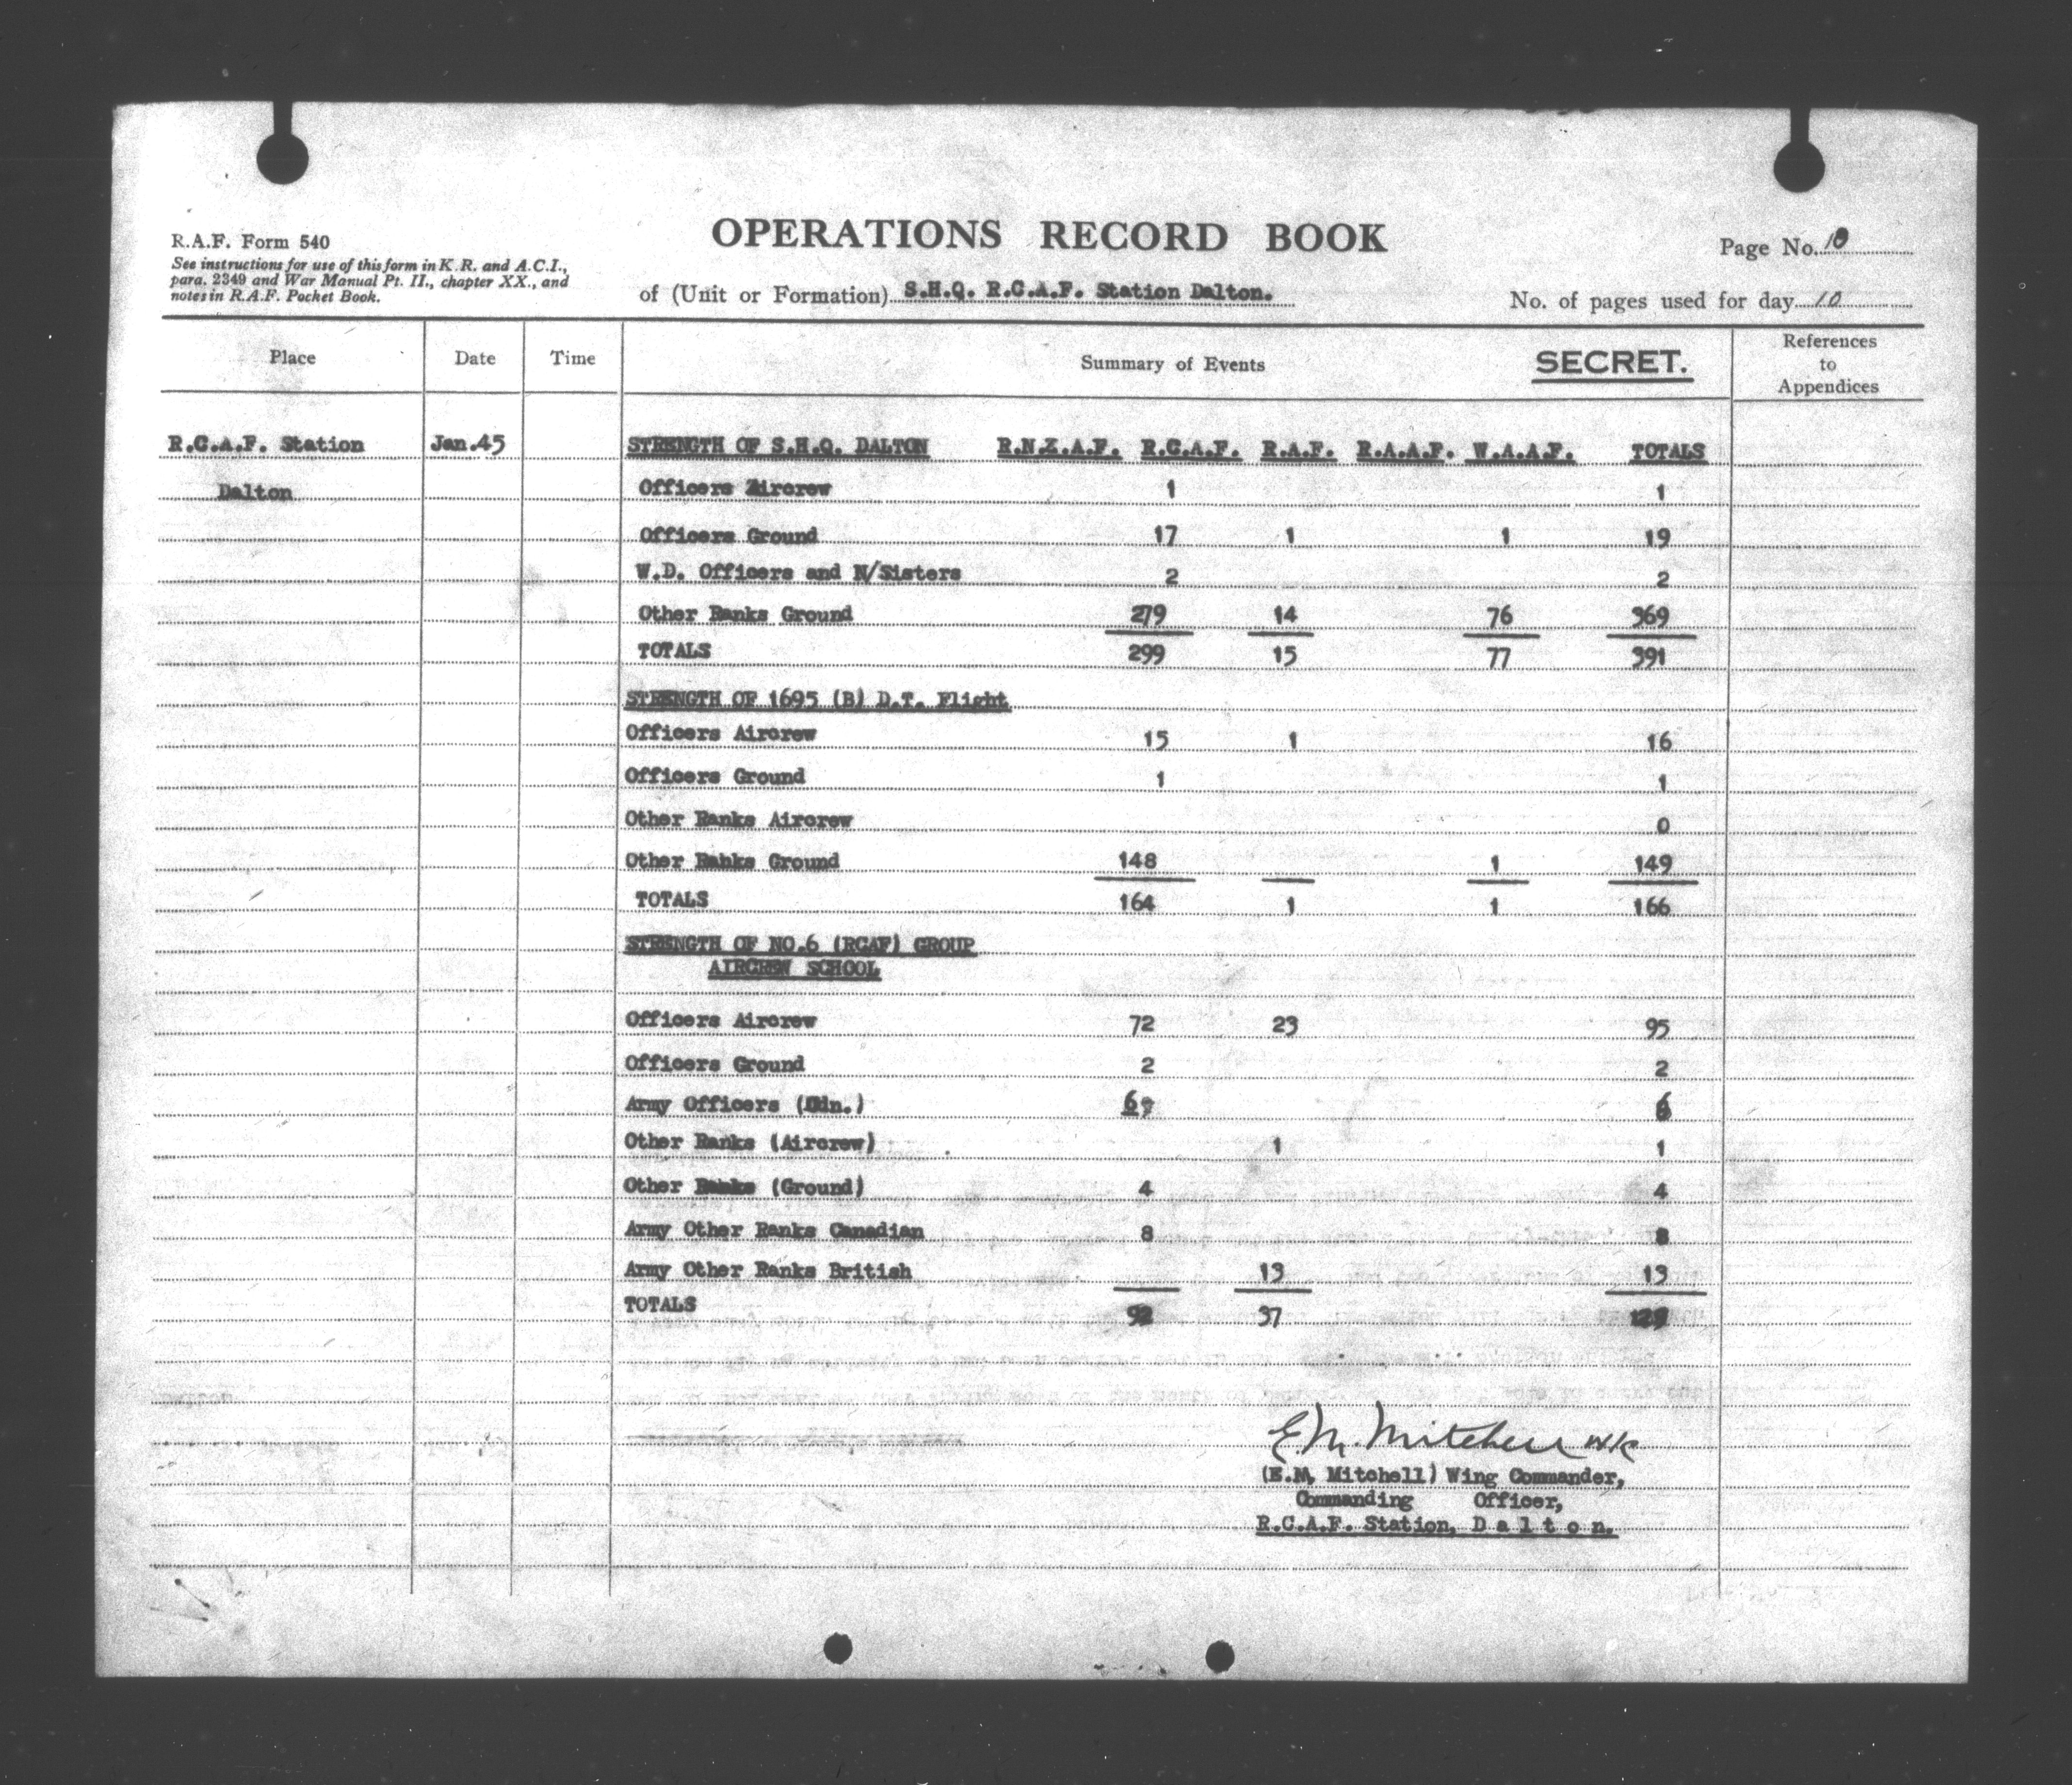 OPERATIONS RECORD BOOK
R.A.F. Form 540
See instructions for use of this form in K.R. and A.C.I.,
para. 2349 and War Manual Pt. II., chapter XX., and
notes in R.A.F. Pocket Book.
Page No. 10
of (Unit or Formation) S.H.Q. R.C.A.F. Station Dalton.
No. of pages used for day 10
Place Date Time Summary of Events SECRET. References to Appendices
R.C.A.F. Station Jan.45 STRENGTH OF S.H.Q. DALTON R.N.Z.A.F. R.C.A.F. R.A.F. R.A.A.F. W.A.A.F. TOTALS
Dalton Officers Aircrew 1 1
Officers Ground 17 1 1 19
W.D. Officers and N/Sisters 2 2
Other Ranks Ground 279 14 76 369
TOTALS 299 15 77 391
STRENGTH OF 1695 (B) D.T. Flight
Officers Aircrew 15 1 16
Officers Ground 1 1
Other Ranks Aircrew 0
Other Ranks Ground 148 1 149
TOTALS 164 1 1 166
STRENGTH OF NO.6 (RCAF) GROUP
AIRCREW SCHOOL
Officers Aircrew 72 23 95
Officers Ground 2 2
Army Officers (Cdn.) 6 6
Other Ranks (Aircrew) 1 1
Other Ranks (Ground) 4 4
Army Other Ranks Canadian 8 8
Army Other Ranks British 13 13
TOTALS 92 37 129
E.M. Mitchell W/C
(E.M. Mitchell) Wing Commander,
Commanding Officer,
R.C.A.F. Station, Dalton.